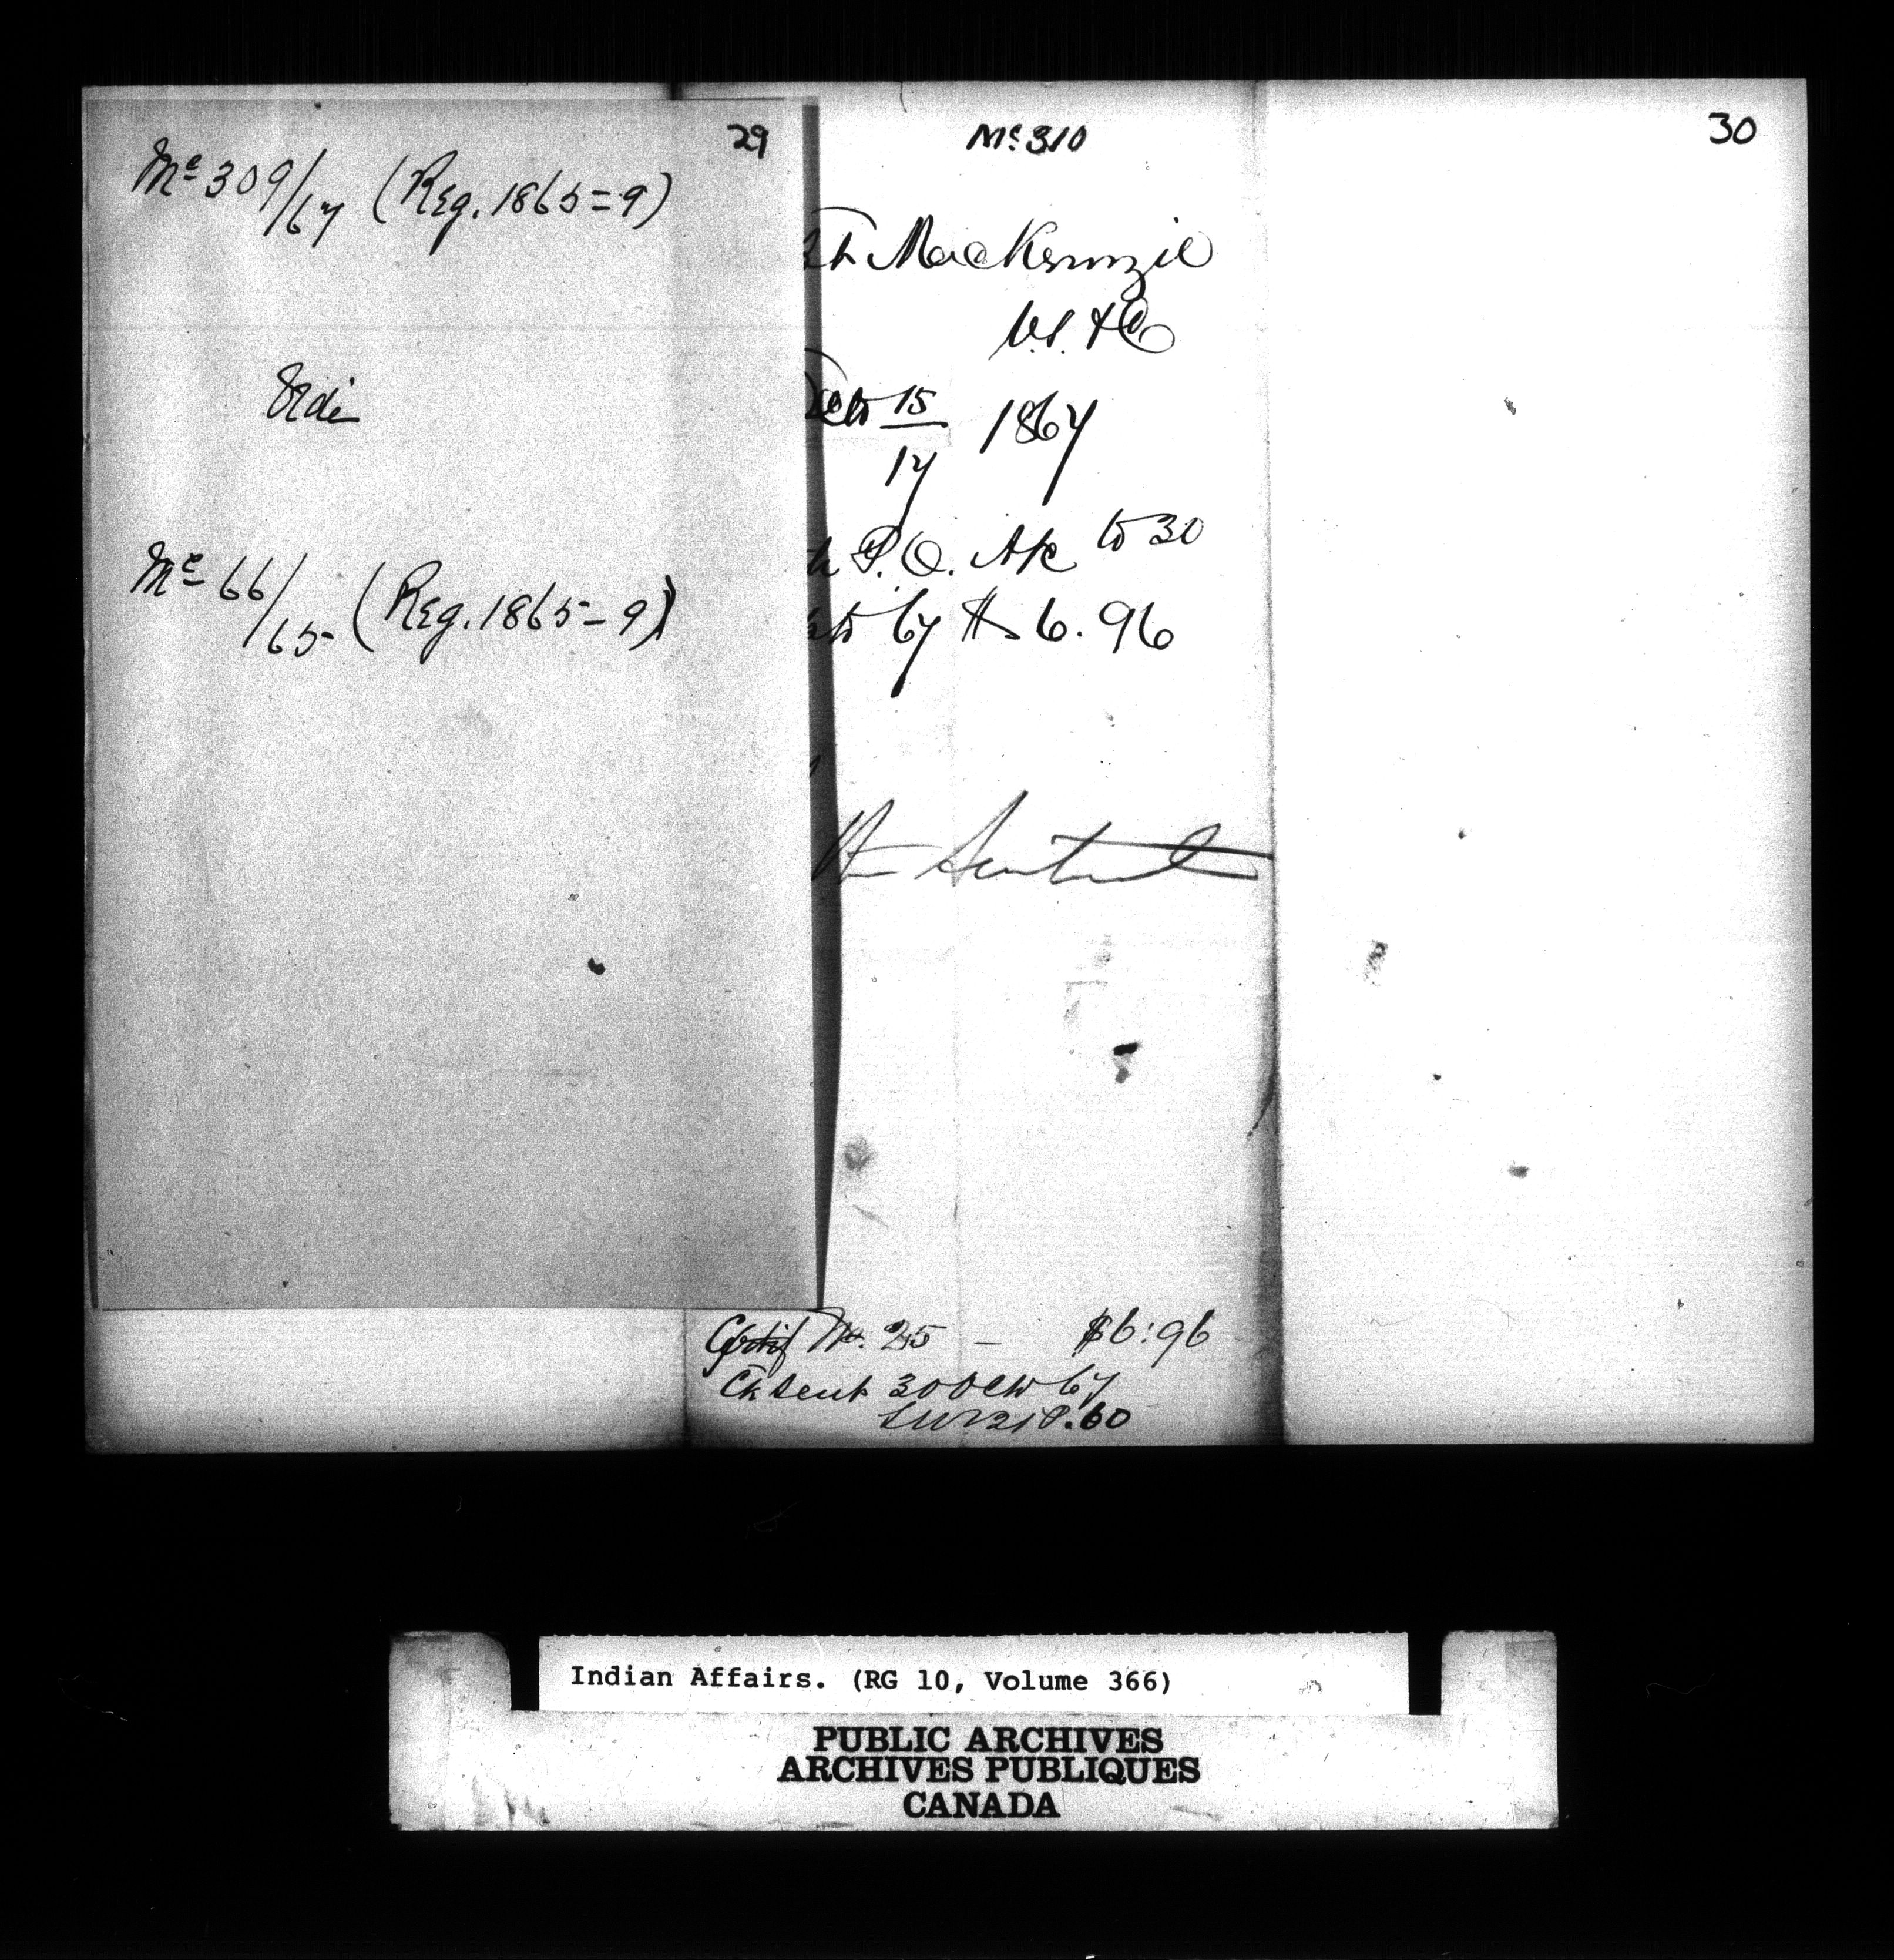 29
Mc 309/67 (Reg. 1865=9)
Vide
Mc 66/65 (Reg. 1865-9)
Mc 310
30
MacKenzie
15/17 1867
P.O. to 30
67 $6.96
Certif No. 25 - $6:96
Ck sent 30 67
Indian Affairs. (RG 10, Volume 366)
PUBLIC ARCHIVES
ARCHIVES PUBLIQUES
CANADA